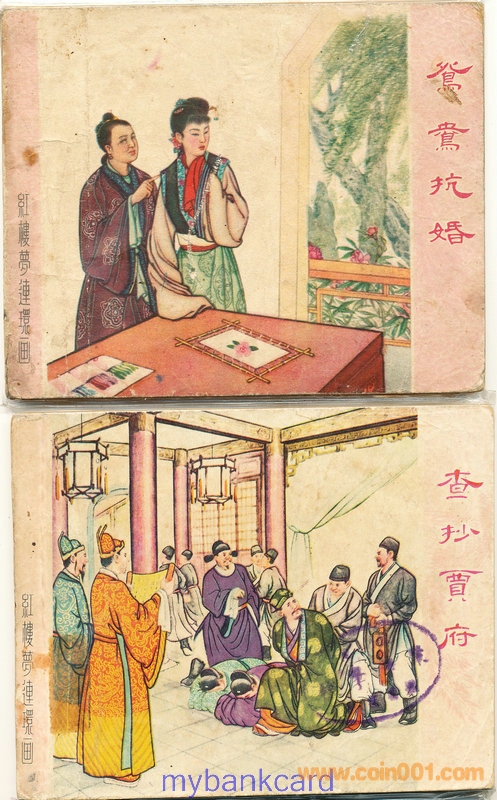 鴛鴦抗婚
紅樓夢連環画
查抄賈府
紅樓夢連環画
www.coin001.com
mybankcard